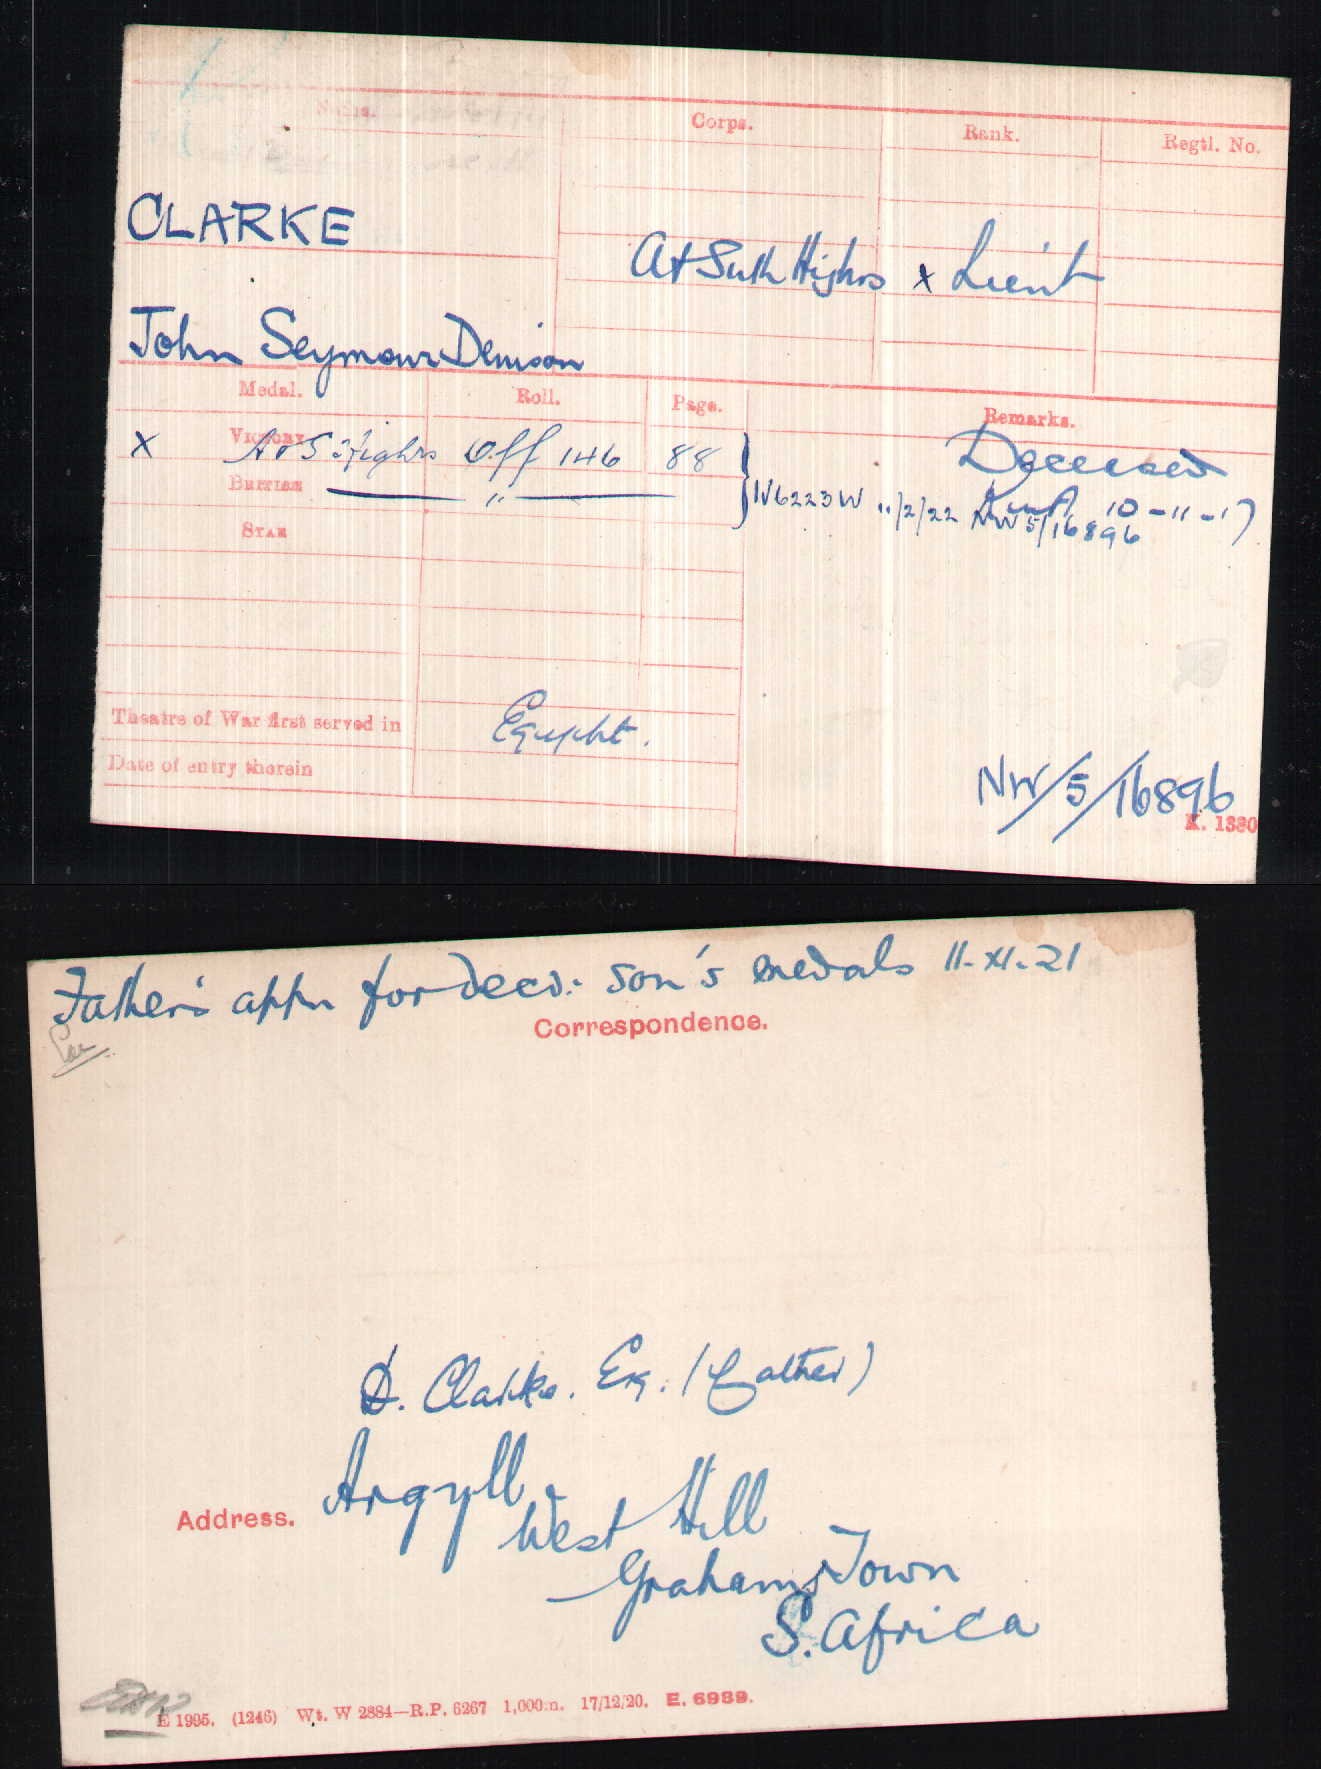 Name. Corps. Rank. Regtl. No.
CLARKE
A & Suth Highrs x Lieut
John Seymour Denison
Medal. Roll. Page. Remarks.
X Victory A & S Highrs Off 146 88 Deceased
British " IV6223W 11/2/22 NW5/16896
K in A 10-11-17
Star
Theatre of War first served in Egypt.
Date of entry therein
NW/5/16896
K. 1380
Father's appn for decd: son's medals 11-XI-21
Correspondence.
D. Clarke. Esq. (Father)
Address. Argyll.
West Hill
Grahams Town
S. Africa
E 1995. (1246) Wt. W 2884—R.P. 6267 1,000m. 17/12/20. E. 6989.